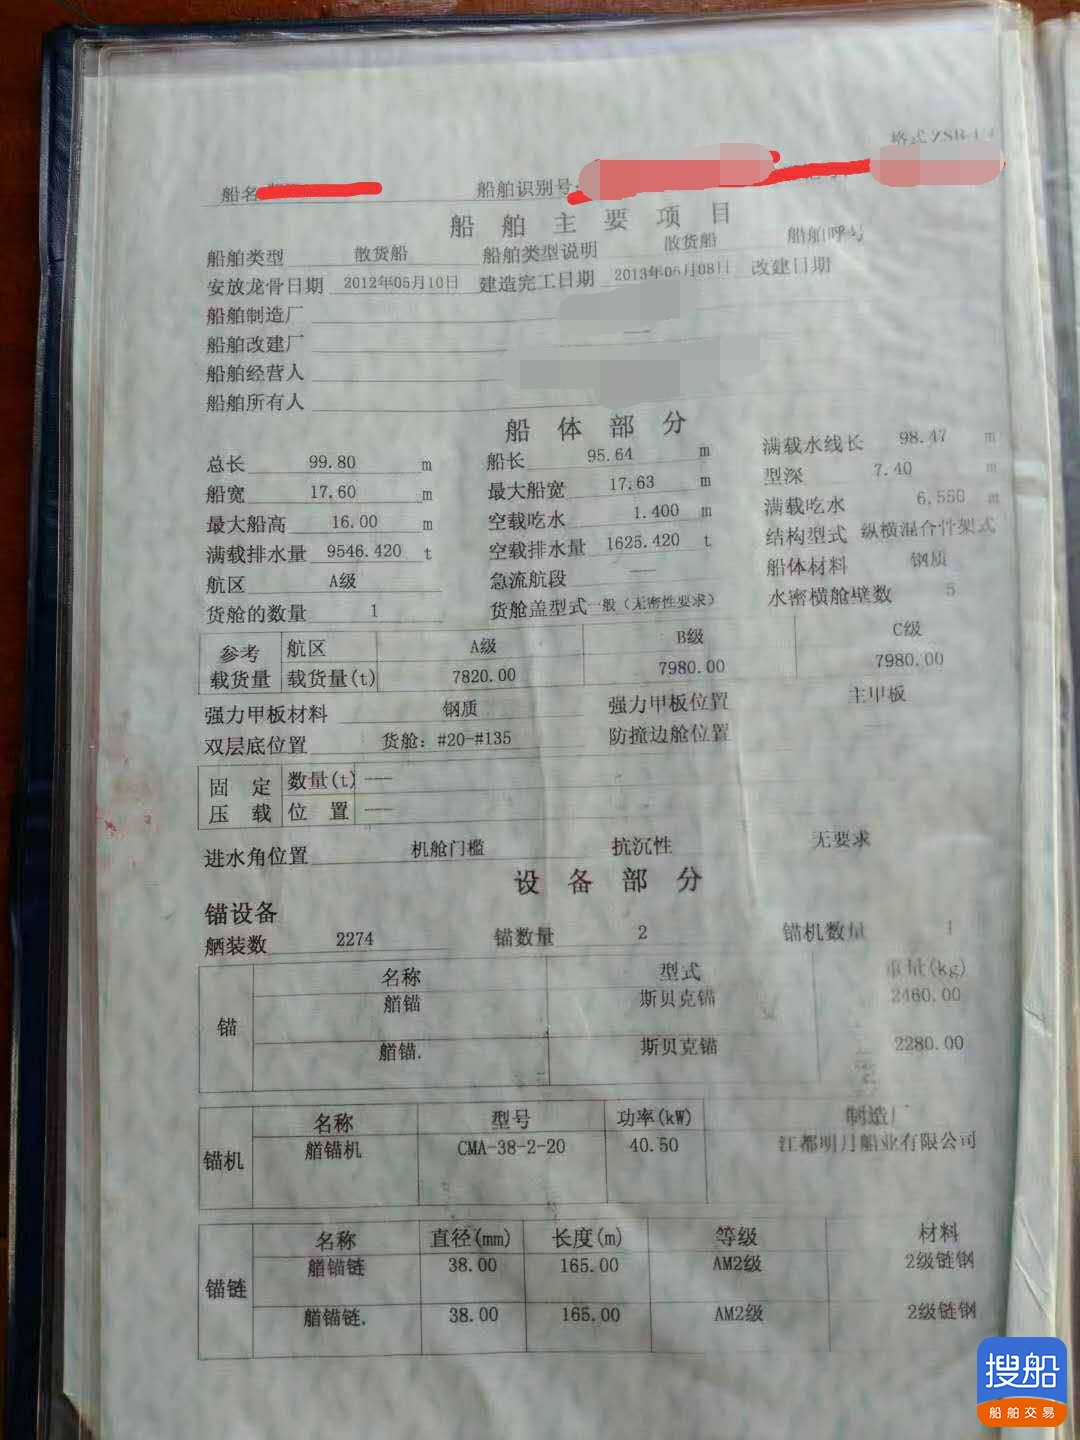 格式ZSB-1/4
船名 船舶识别号:
船舶主要项目
船舶类型 散货船 船舶类型说明 散货船 船舶呼号
安放龙骨日期 2012年05月10日 建造完工日期 2013年05月08日 改建日期
船舶制造厂
船舶改建厂
船舶经营人
船舶所有人
船体部分
总长 99.80 m 船长 95.64 m 满载水线长 98.47 m
船宽 17.60 m 最大船宽 17.63 m 型深 7.40 m
最大船高 16.00 m 空载吃水 1.400 m 满载吃水 6.550 m
满载排水量 9546.420 t 空载排水量 1625.420 t 结构型式 纵横混合骨架式
航区 A级 急流航段 —— 船体材料 钢质
货舱的数量 1 货舱盖型式 一般（无密性要求） 水密横舱壁数 5
参考载货量 航区 A级 B级 C级
载货量(t) 7820.00 7980.00 7980.00
强力甲板材料 钢质 强力甲板位置 主甲板
双层底位置 货舱：#20-#135 防撞边舱位置
固定压载 数量(t) ——
位置 ——
进水角位置 机舱门槛 抗沉性 无要求
设备部分
锚设备
舾装数 2274 锚数量 2 锚机数量 1
锚 名称 型式 重量(kg)
艏锚 斯贝克锚 2460.00
艏锚. 斯贝克锚 2280.00
锚机 名称 型号 功率(kW) 制造厂
艏锚机 CMA-38-2-20 40.50 江都明月船业有限公司
锚链 名称 直径(mm) 长度(m) 等级 材料
艏锚链 38.00 165.00 AM2级 2级链钢
艏锚链. 38.00 165.00 AM2级 2级链钢
搜船
船舶交易